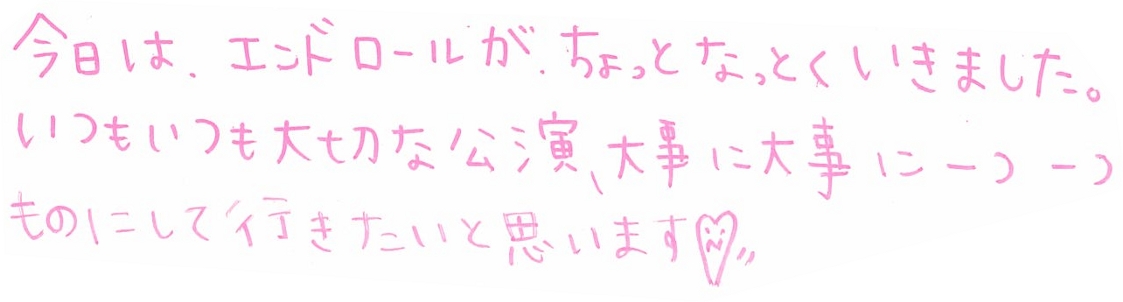 今日は、エンドロールが、ちょっとなっとくいきました。
いつもいつも大切な公演、大事に大事に一つ一つ
ものにして行きたいと思います♡〃